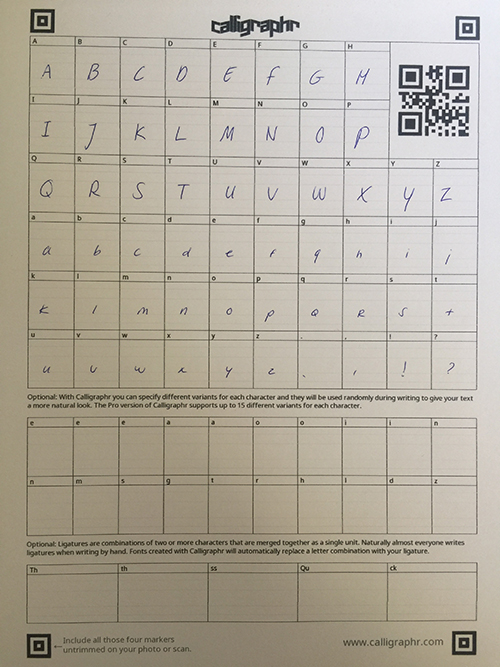 calligraphr
A B C D E F G H
A B C D E F G H
I J K L M N O P
I J K L M N O P
Q R S T U V W X Y Z
Q R S T U V W X Y Z
a b c d e f g h i j
a b c d e f g h i j
k l m n o p q r s t
k l m n o p Q R S t
u v w x y z . , ! ?
u v w x y z . , ! ?
Optional: With Calligraphr you can specify different variants for each character and they will be used randomly during writing to give your text
a more natural look. The Pro version of Calligraphr supports up to 15 different variants for each character.
e e e a a o o i i n
n m s g t r h l d z
Optional: Ligatures are combinations of two or more characters that are merged together as a single unit. Naturally almost everyone writes
ligatures when writing by hand. Fonts created with Calligraphr will automatically replace a letter combination with your ligature.
Th th ss Qu ck
←Include all those four markers
untrimmed on your photo or scan.
www.calligraphr.com